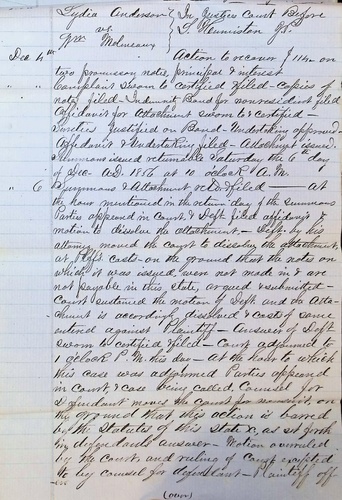 Lydia Anderson } In Justices Court Before
vs.
Wm Molineaux } S. Penniston J.P.
Dec 4th Action to recover $114.00 on
two promissory notes, principal & interest
Complaint Sworn to certified filed - Copies of
notes filed - Indemnit Bond for nonresident filed
Affidavit for Attachment sworn to & certified -
Sureties Justified on Bond - Undertaking approved -
Affidavit & Undertaking filed - Attachmt issued.
Summons issued returnable Saturday the 6th day
of Dec A.D. 1856 at 10 oclock A.M.
" 6 Summons & Attachment retd & filed — at
the hour mentioned in the return day of the summons
Parties appeared in Court, & Deft filed affidavit &
motion to dissolve the attachment. - Deft. by his
attorney moved the court to dissolve the attachment,
at Plffs costs - on the ground that the notes on
which it was issued, were not made in & are
not payable in this state, argued & submitted -
Court sustained the motion of Deft. and the Atta-
chment is accordingly dissolved & costs of same
entered against Plaintiff - Answer of Deft
sworn to certified & filed - Court adjourned to
1 oclock P.M. this day - at the hour to which
this case was adjourned Parties appeared
in Court, & Case being called, Counsel for
defendant moves the Court for nonsuit, on
the ground that this action is barred
by the Statutes of this State &c, as set forth
in defendants answer - Motion overruled
by the Court, and ruling of Court excepted
to by counsel for defendant - Plaintiff off
(over)